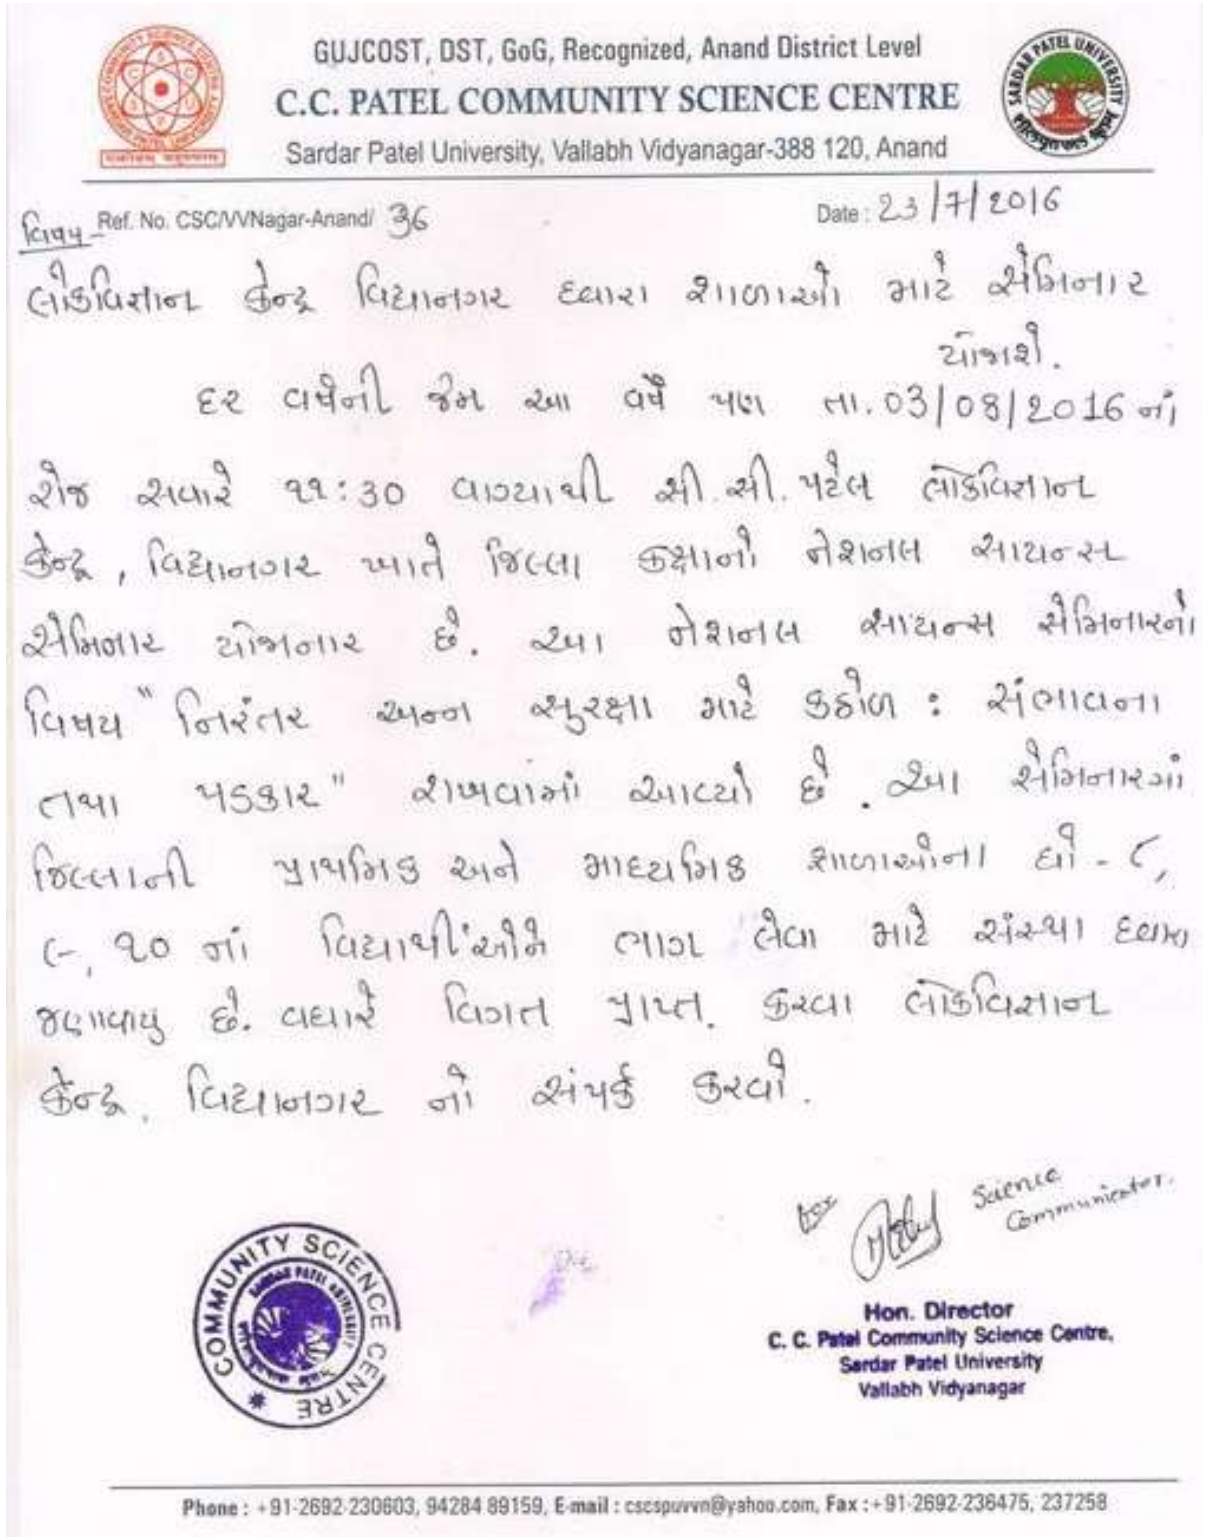 GUJCOST, DST, GoG, Recognized, Anand District Level
C.C. PATEL COMMUNITY SCIENCE CENTRE
Sardar Patel University, Vallabh Vidyanagar-388 120, Anand
SARDAR PATEL UNIVERSITY
Ref. No. CSC/VVNagar-Anand/ 36
Date : 23/7/2016
વિષય -
લોકવિજ્ઞાન કેન્દ્ર વિદ્યાનગર દ્વારા શાળાઓ માટે સેમિનાર
યોજાશે.
દર વર્ષની જેમ આ વર્ષે પણ તા. 03/08/2016 નાં
રોજ સવારે ૧૧:30 વાગ્યાથી સી.સી. પટેલ લોકવિજ્ઞાન
કેન્દ્ર, વિદ્યાનગર ખાતે જિલ્લા કક્ષાનો નેશનલ સાયન્સ
સેમિનાર યોજનાર છે. આ નેશનલ સાયન્સ સેમિનારનો
વિષય " નિરંતર અન્ન સુરક્ષા માટે કઠોળ : સંભાવના
તથા પડકાર" રાખવામાં આવ્યો છે. આ સેમિનારમાં
જિલ્લાની પ્રાથમિક અને માધ્યમિક શાળાઓના ધો - ૮,
૯, ૧૦ નાં વિદ્યાર્થીઓને ભાગ લેવા માટે સંસ્થા દ્વારા
જણાવાયુ છે. વધારે વિગત પ્રાપ્ત. કરવા લોકવિજ્ઞાન
કેન્દ્ર, વિદ્યાનગર નો સંપર્ક કરવો.
for
Science
Communicator.
COMMUNITY SCIENCE CENTRE
SARDAR PATEL UNIVERSITY
Hon. Director
C. C. Patel Community Science Centre,
Sardar Patel University
Vallabh Vidyanagar
Phone : +91-2692-230603, 94284 89159, E-mail : cscspuvvn@yahoo.com, Fax :+91-2692-236475, 237258